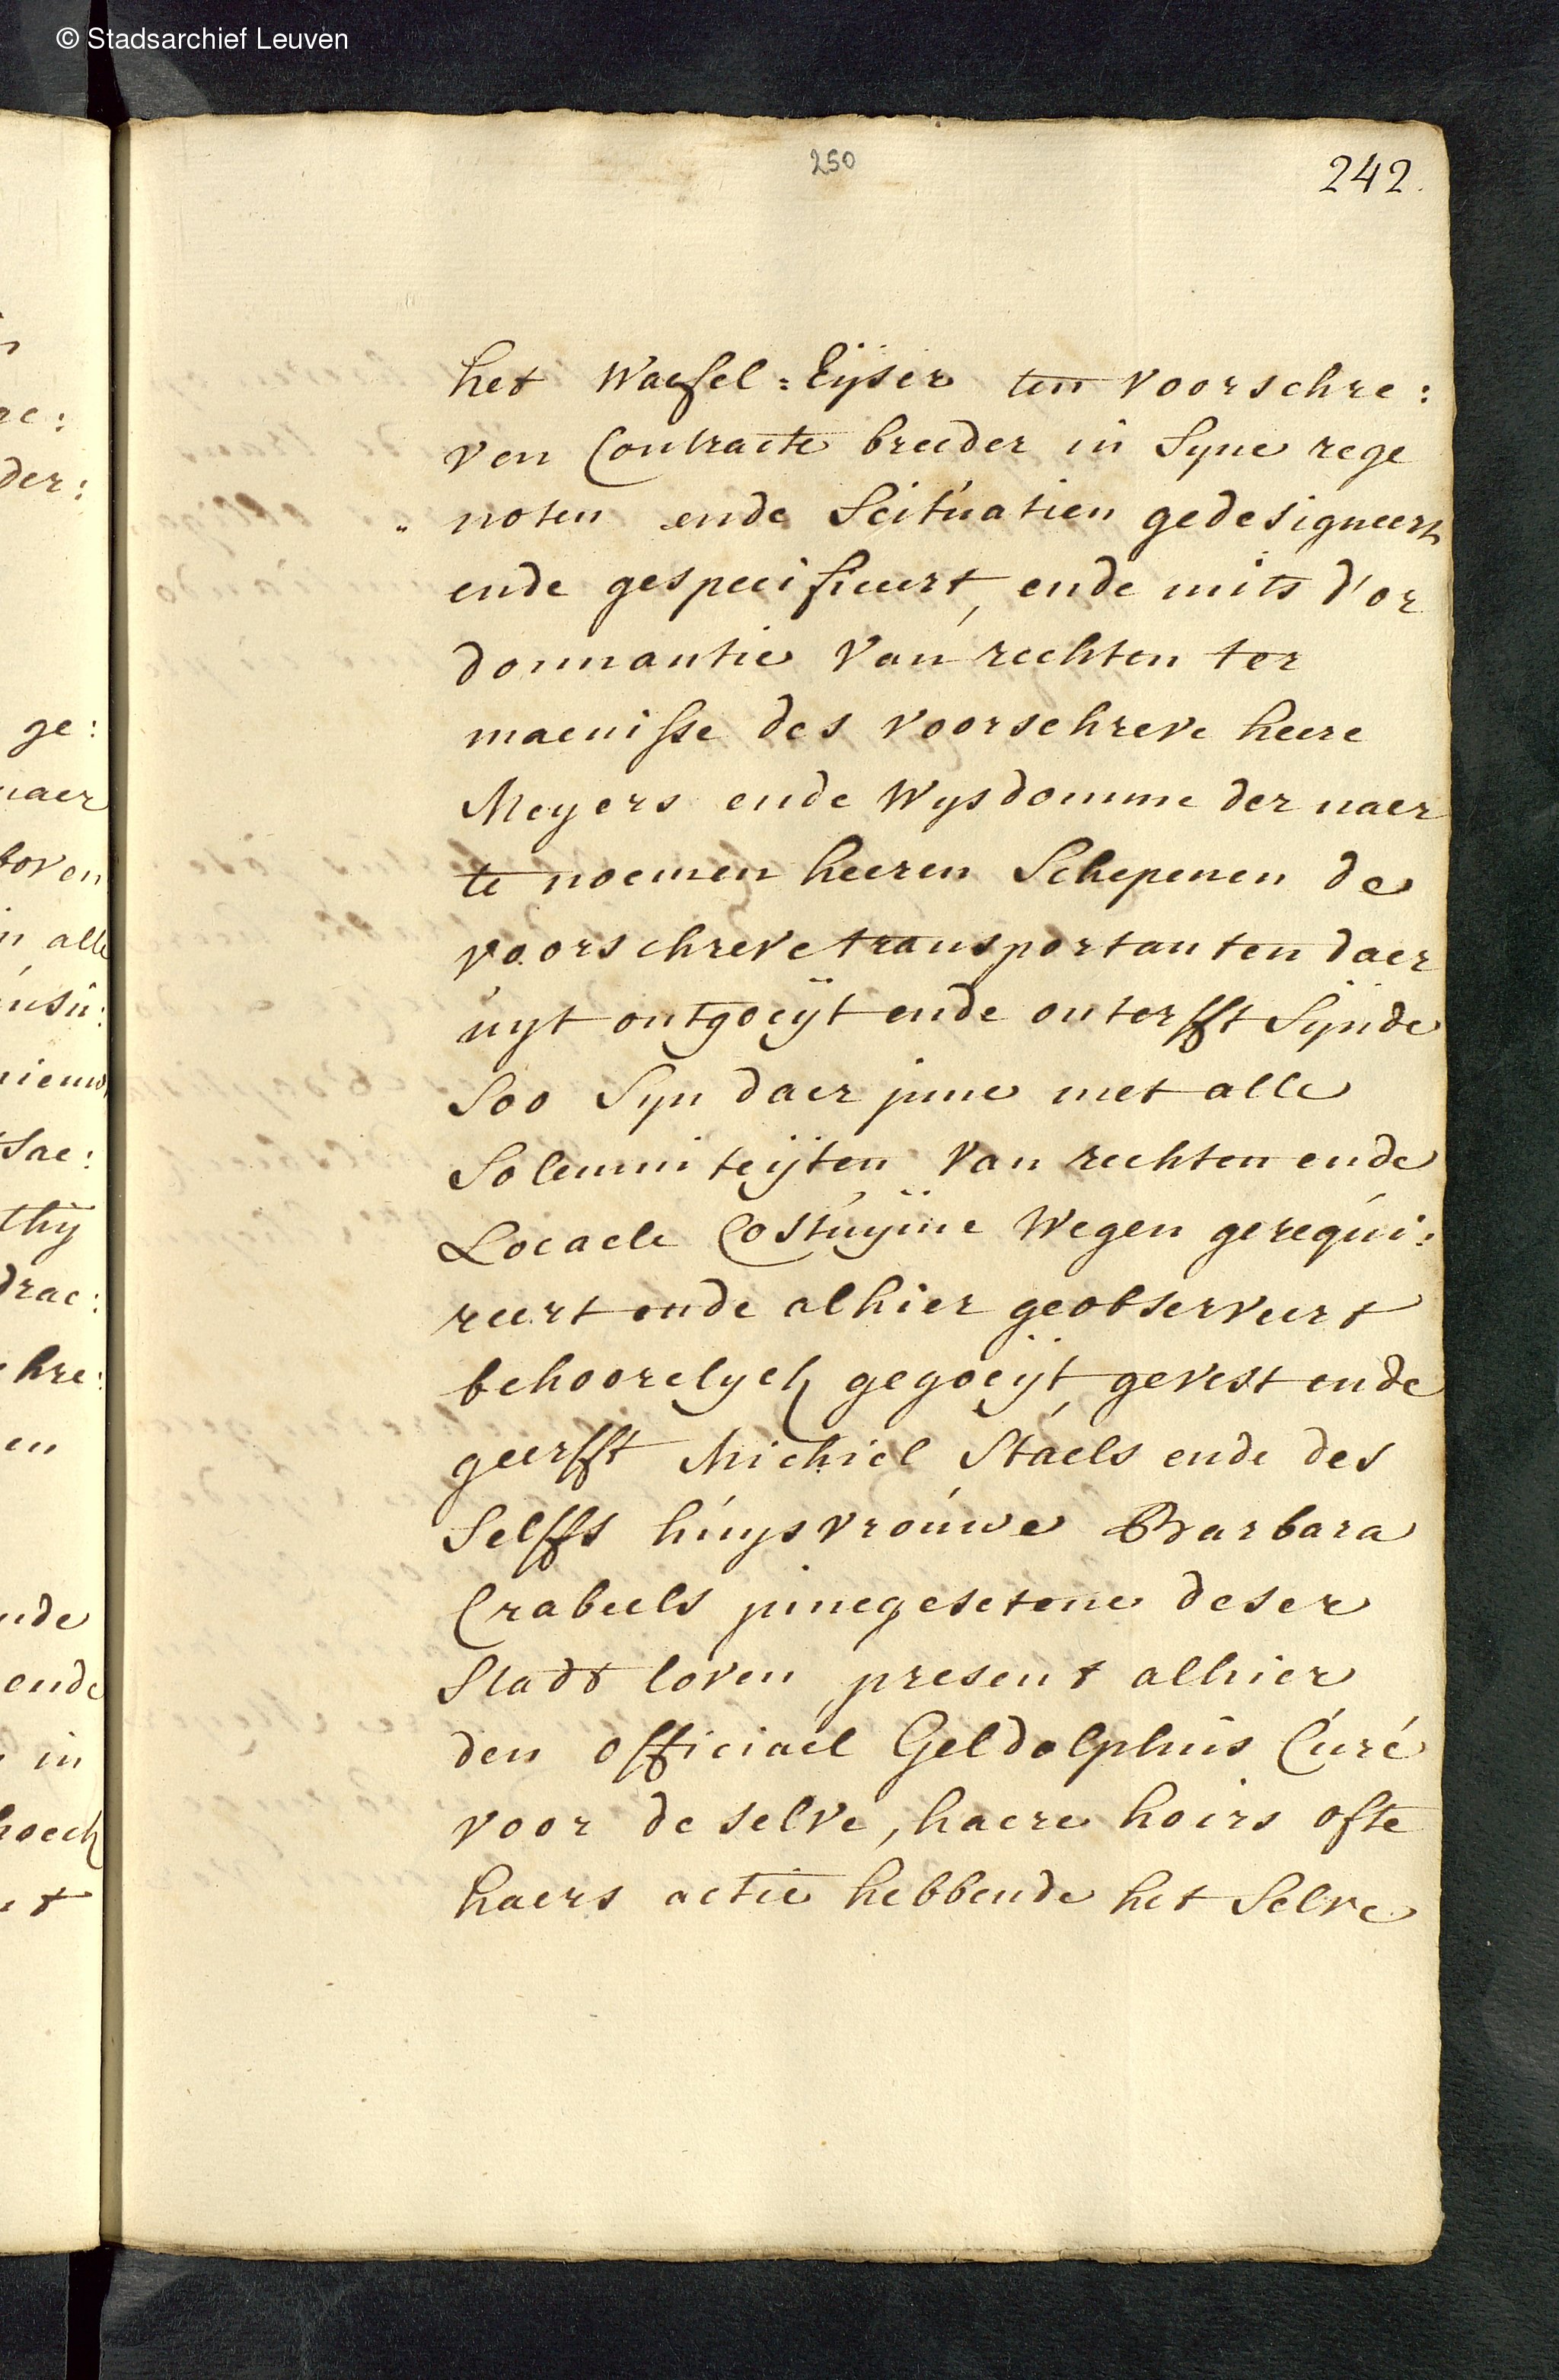 © Stadsarchief Leuven
250
242.
het Waefel=Eÿser ten voorschre:
ven Contracte breeder in Syne rege
noten ende Scituatien gedesigneert
ende gespecificeert, ende mits d'or
donnantie van rechten ter
maenisse des voorschreve heere
Meyers ende Wysdomme der naer
te noemen heeren Schepenen de
voorschreve transportanten daer
uyt ontgoeÿt ende onterfft Sÿnde
Soo Syn daer jnne met alle
Solemniteÿten van rechten ende
Locaele Costuÿme Wegen gerequi:
reert ende alhier geobserveert
behoorelyck gegoeÿt, gevest ende
geerfft Michiel Staels ende des
Selffs huysvrouwe Barbara
Crabeels jnnegesetene deser
Stadt loven present alhier
den officiael Geldolphus Curé
voor de selve, haere hoirs ofte
haers actie hebbende het Selve
ge:
naer
boven
in alle
nieuw
Sae:
thÿ
drae:
hre:
en
ende
in